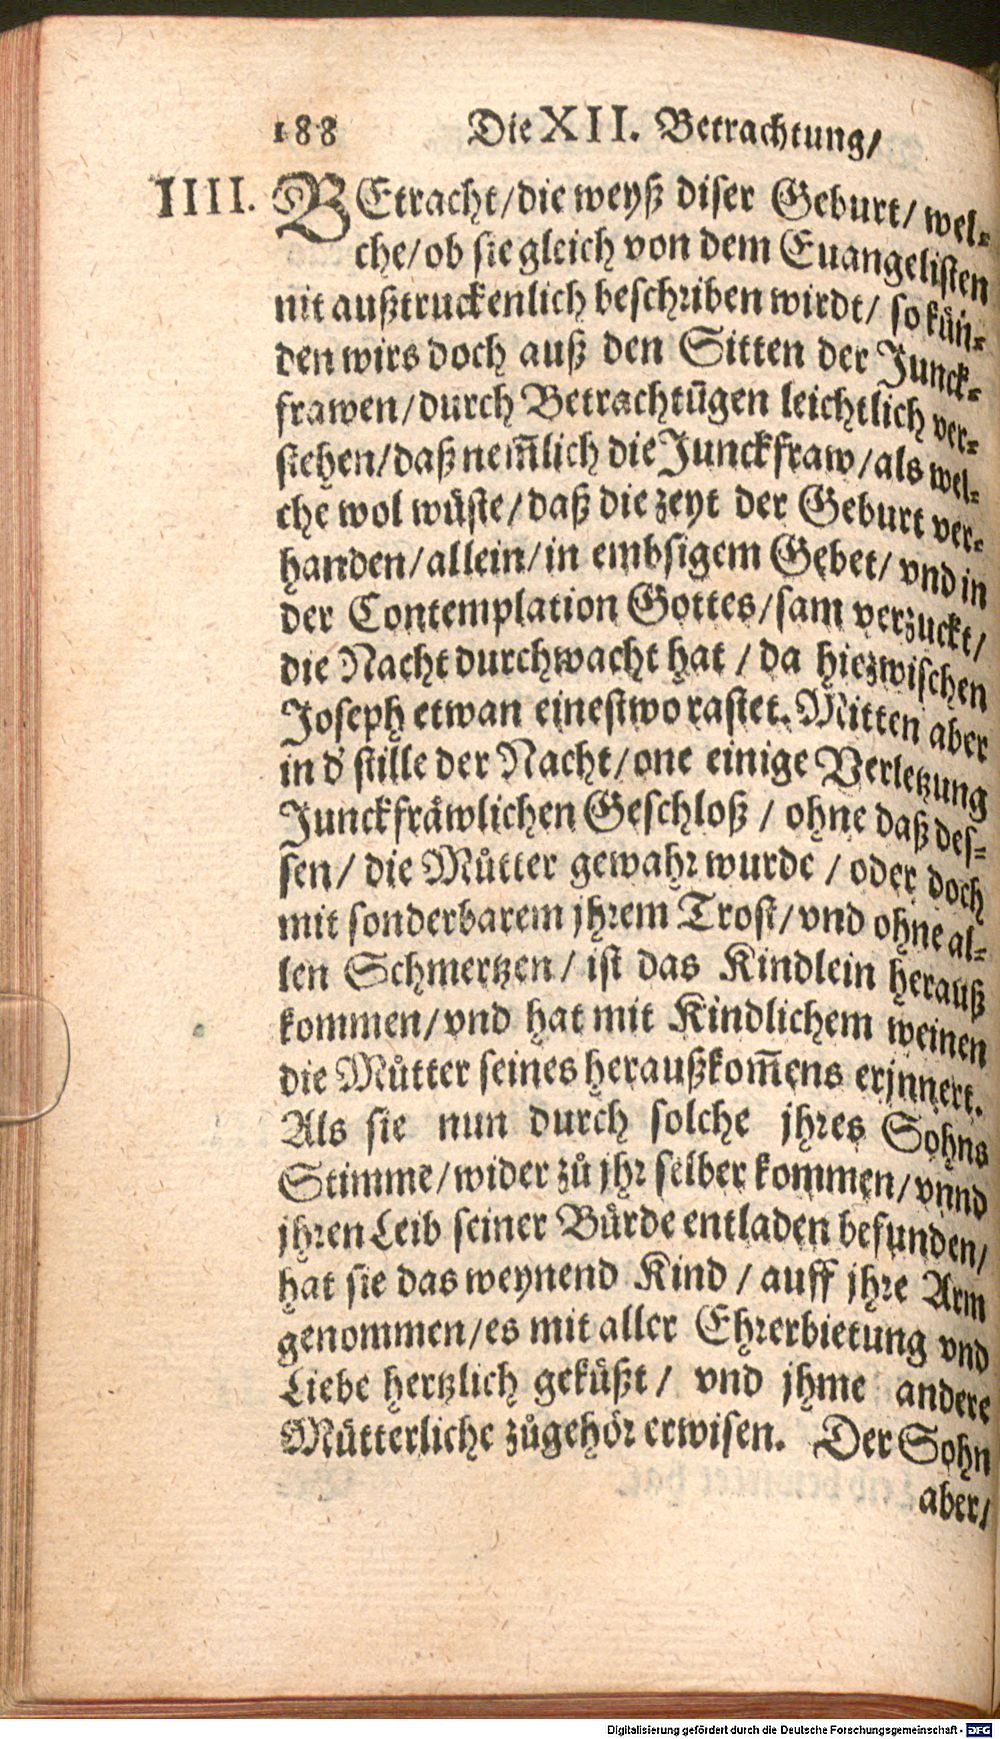 188 Die XII. Betrachtung/
IIII. BEtracht/die weyß diser Geburt/ wel-
che/ob sie gleich von dem Euangelisten
nit außtruckenlich beschriben wirdt/ so kün-
den wirs doch auß den Sitten der Junck-
frawen/durch Betrachtūgen leichtlich ver-
stehen/daß nem̄lich die Junckfraw/als wel-
che wol wüste/daß die zeyt der Geburt ver-
handen/allein/in embsigem Gebet/ vnd in
der Contemplation Gottes/sam verzuckt/
die Nacht durchwacht hat / da hiezwischen
Joseph etwan einestwo rastet. Mitten aber
in d' stille der Nacht/one einige Verletzung
Junckfräwlichen Geschloß / ohne daß des-
sen/ die Můtter gewahr wurde / oder doch
mit sonderbarem jhrem Trost/vnd ohne al-
len Schmertzen/ ist das Kindlein herauß
kommen/vnd hat mit Kindlichem weinen
die Můtter seines heraußkom̄ens erjnnert.
Als sie nun durch solche jhres Sohns
Stimme/wider zů jhr selber kommen/vnnd
jhren Leib seiner Bürde entladen befunden/
hat sie das weynend Kind / auff jhre Arm
genommen/es mit aller Ehrerbietung vnd
Liebe hertzlich geküßt/ vnd jhme andere
Mütterliche zůgehör erwisen. Der Sohn
aber/
Digitalisierung gefördert durch die Deutsche Forschungsgemeinschaft - DFG